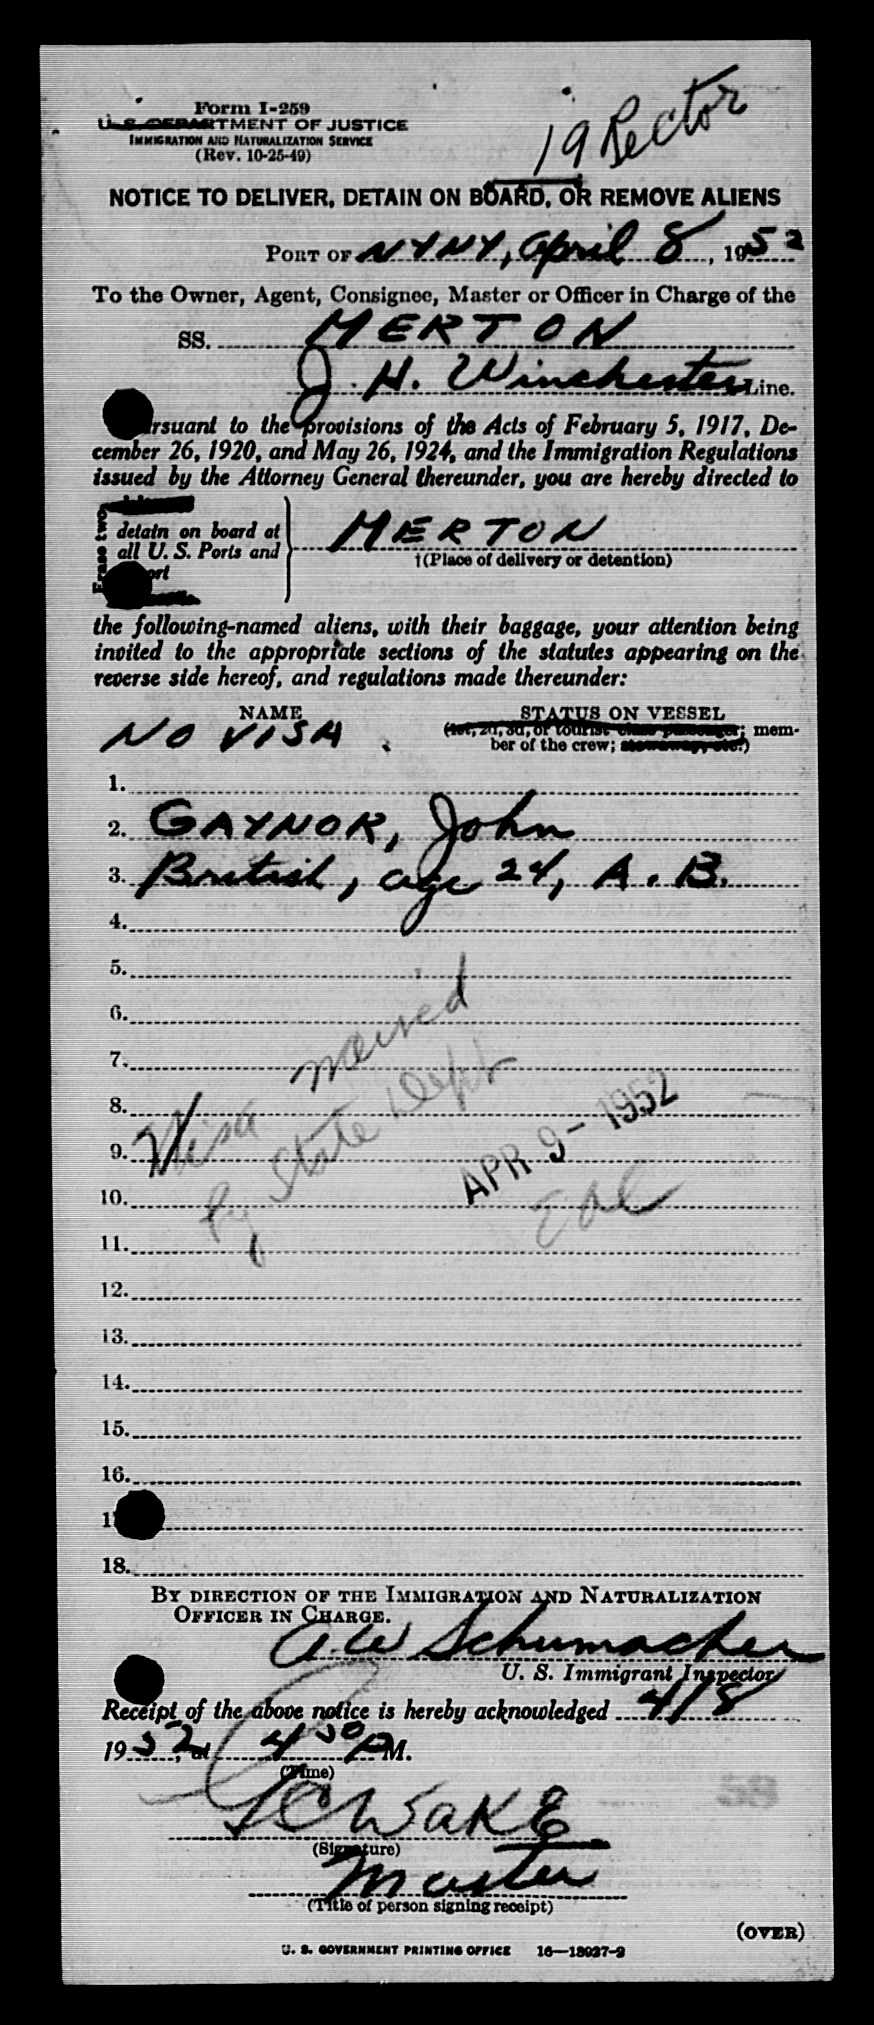 Form I-259
U. S. DEPARTMENT OF JUSTICE
IMMIGRATION AND NATURALIZATION SERVICE
(Rev. 10-25-49)
19 Rector
NOTICE TO DELIVER, DETAIN ON BOARD, OR REMOVE ALIENS
PORT OF NYNY, April 8, 1952
To the Owner, Agent, Consignee, Master or Officer in Charge of the
SS. MERTON
J. H. Winchester Line.
rsuant to the provisions of the Acts of February 5, 1917, De-
cember 26, 1920, and May 26, 1924, and the Immigration Regulations
issued by the Attorney General thereunder, you are hereby directed to
Erase two
detain on board at
all U. S. Ports and
ort
MERTON
†(Place of delivery or detention)
the following-named aliens, with their baggage, your attention being
invited to the appropriate sections of the statutes appearing on the
reverse side hereof, and regulations made thereunder:
NAME STATUS ON VESSEL
NO VISA (1st, 2d, 3d, or tourist class passenger; mem-
ber of the crew; stowaway, etc.)
1.
2. GAYNOR, John
3. British, age 24, A. B.
4.
5.
6.
7.
8.
9.
10.
11.
12.
13.
14.
15.
16.
1
18.
Visa waived
by State Dept
APR 9 - 1952
BY DIRECTION OF THE IMMIGRATION AND NATURALIZATION
OFFICER IN CHARGE.
A. W Schumacher
U. S. Immigrant Inspector
Receipt of the above notice is hereby acknowledged 4/8
1952, at 4 30 PM.
(Time)
WAKE
(Signature)
Master
(Title of person signing receipt)
(OVER)
U. S. GOVERNMENT PRINTING OFFICE 16—18927-2